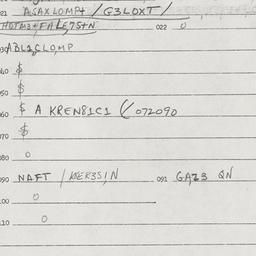 021 ASAXLOMP+ /G3LOXT/
HOTM3+FALE,75+N 022 0
030 ABL1CLOMP
040 $
050 $
060 $ A KREN81C1 ( 072090
070 $
080 0
090 NAFT /WER3S1N 091 GAZ3 QN
100 0
110 0